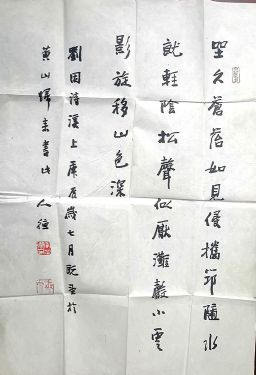 坐久蒼苔如見侵攜筇隨水
就輕陰松聲似厭灘聲小雲
影旋移山色深
劉因詩溪上庚辰歲七月既望於
黄山歸來書此 人